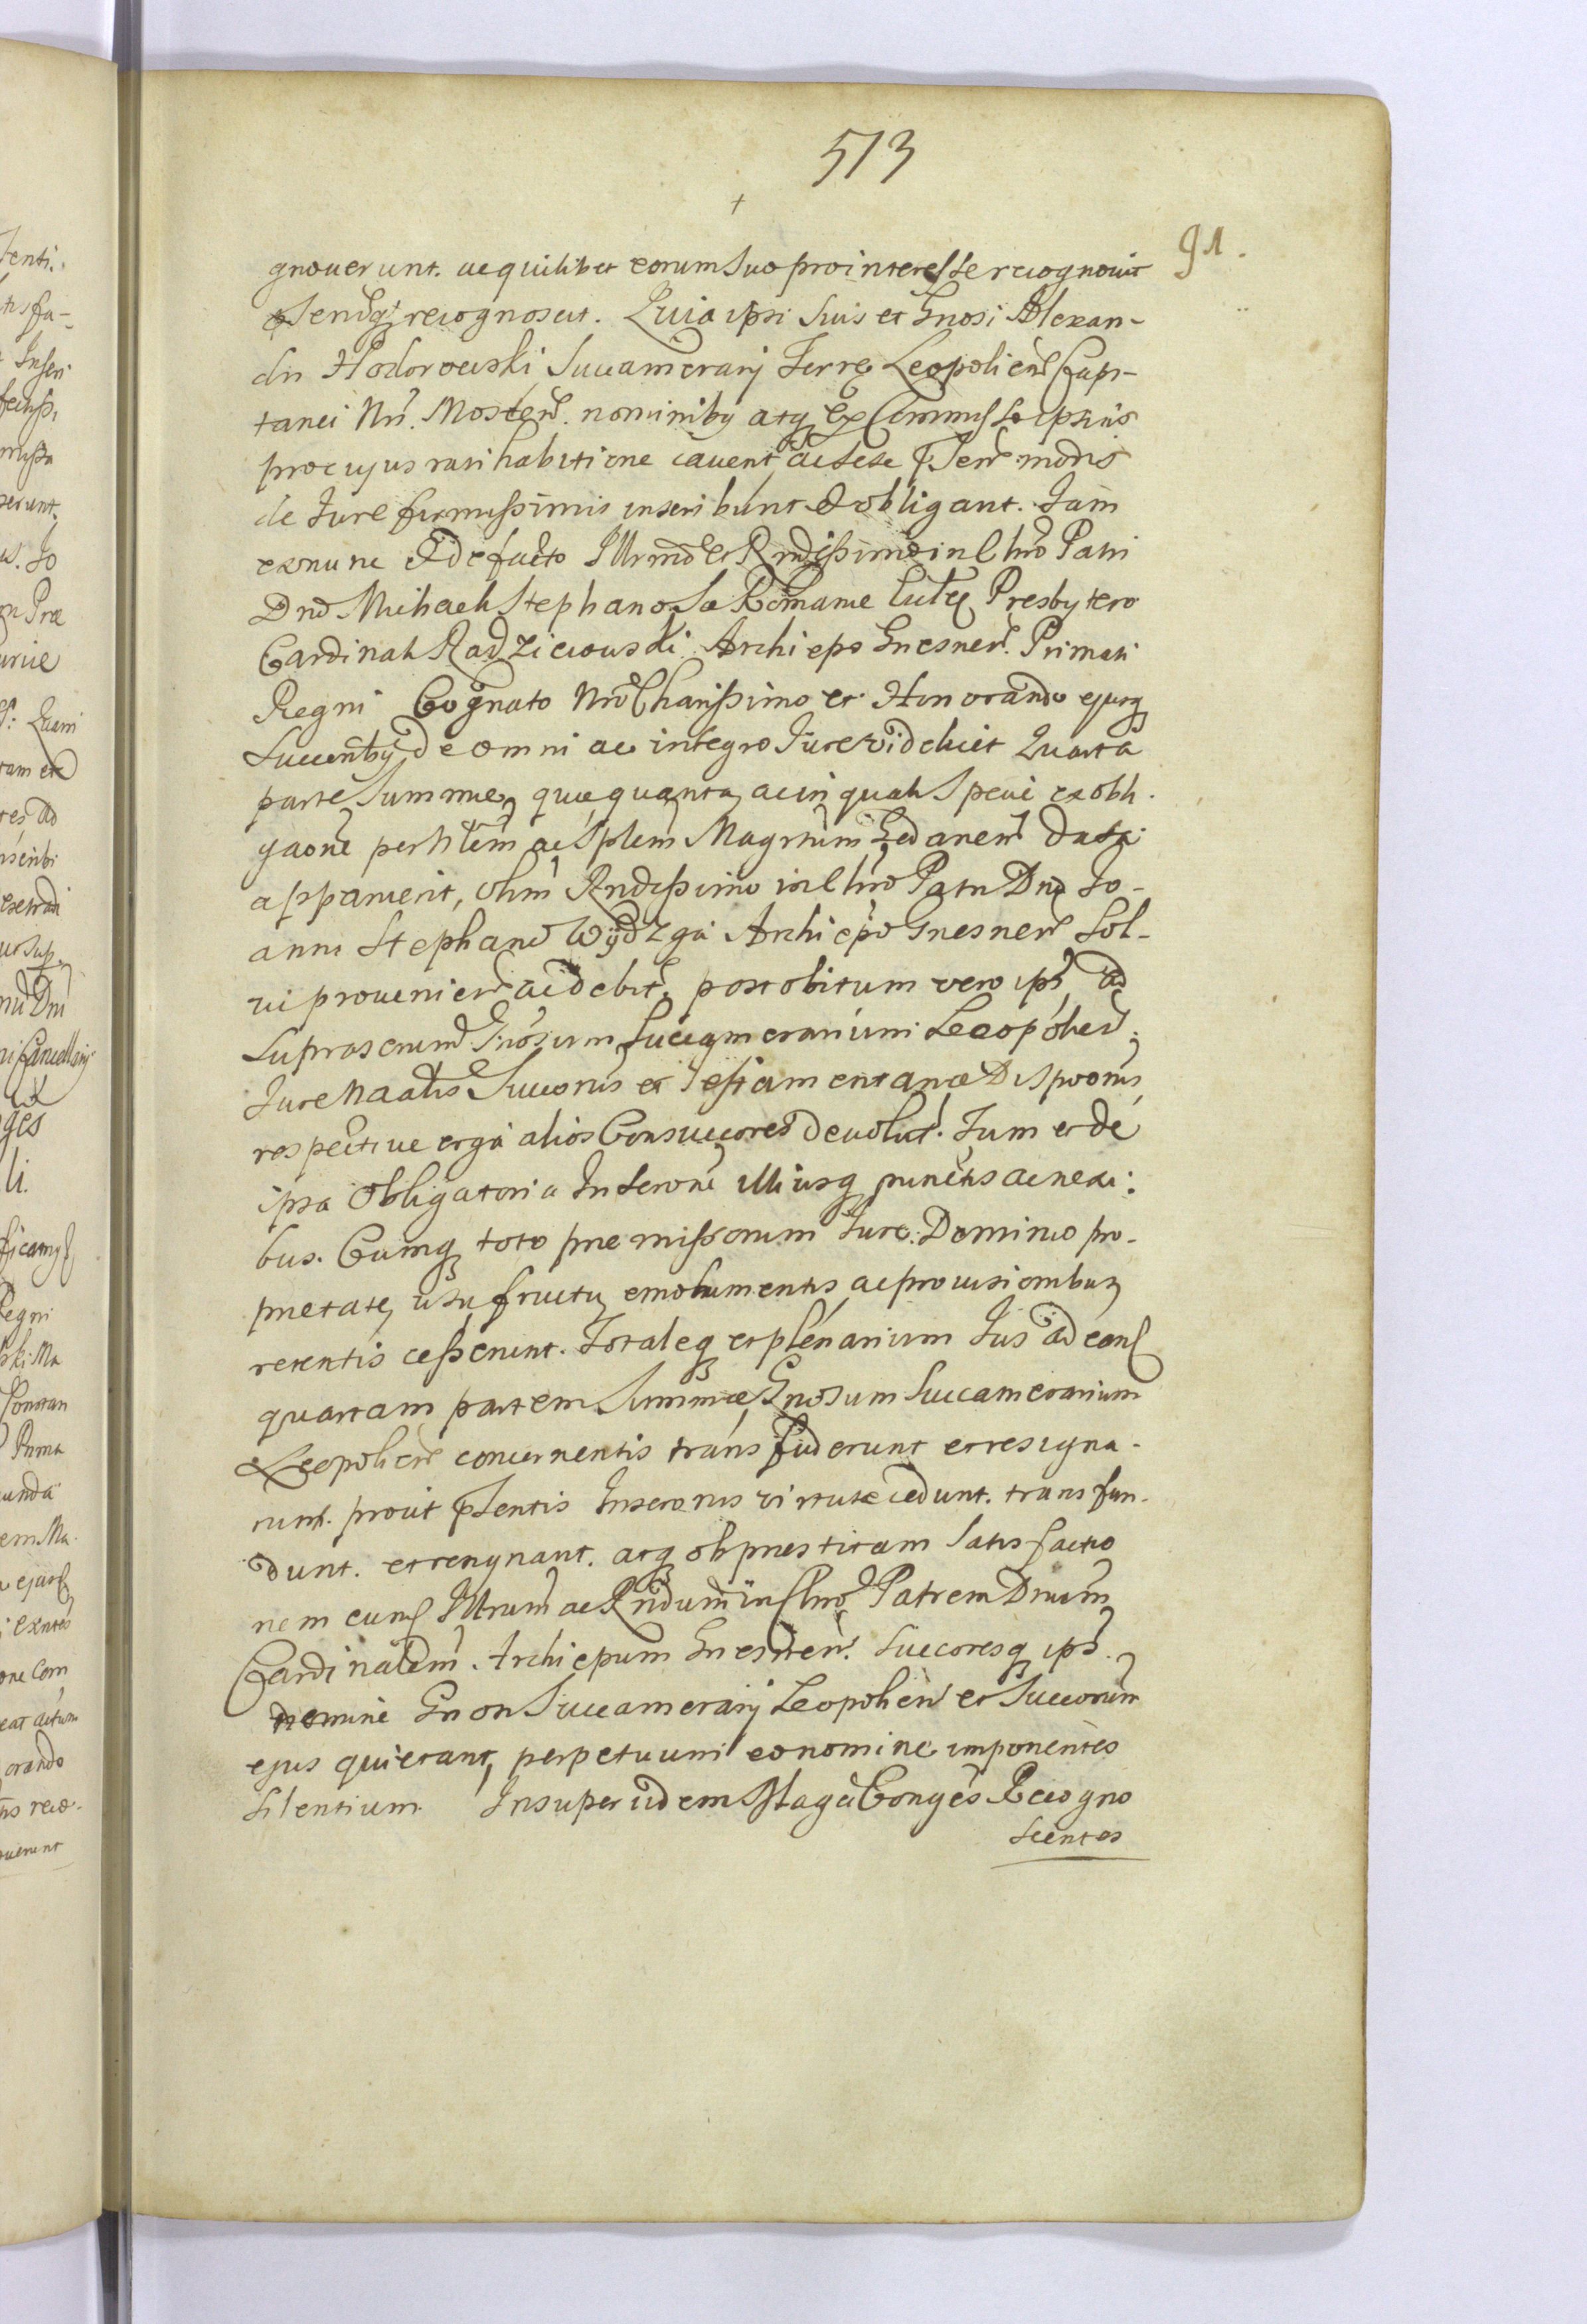 513
91.
gnoverunt. ac quilibet eorum suo pro interesse recognovit
recognoscit. Quia ipsi suis et Gnosi Alexan-
dri Hodorowski Succamerarij Terrę Leopolien Capi-
tanei Nri. Mosten. nominiby atq ex Commisso ipsius
pro cujus ratihabitione cavent ac sese Pñten modis
de Jure firmissimis inscribunt et obligant. Jam
exnunc et de facto Illrmo et Rndissimo in Chro Patri
Dno Michaeli Stephano S. Romanae Eccłę Presbytero
Cardinali Radzieiowski Archiepo Gnesnen. Primati
Regni Cognato Nro Charissimo et Honorando ejusq
Succoriby de omni ac integro Jure videlicet Quarta
parte Summae, quaequanta, ac in quali specie ex obli-
gaone per Nłem ac Splem Magrtum Gedanen data
apparuerit, olim Rndissimo in Chro Patri Dno Jo-
anni Stephano Wydzga Archiepo Gnesnen Sol-
vi provenien ac debit, post obitum vero ips, ad
suprascrium Gnosum Succamerarium Leopolien,
Jure Naalis Succonis et Testamentariae Dispoonis
respective erga alios Consuccores devolut. Tum et de
ipsa Obligatoria Inscrone illiusq punctis ac nexi:
bus. Cumq toto praemissorum Jure. Dominio pro-
prietate, usufructu, emolumentis, ac provisionibus
retentis cesserunt. Totaleq et plenarium Jus ad eand
quartam partem Summae, Gnosum Succamerarium
Leopolien concernentis transfuderunt et resigna-
runt. prout Pñtentis Inscronis virtute cedunt. transfun-
dunt. et resignant. atq ob praestitam satisfactio
nem eund Illrmum ac Rndum in Chro Patrem Dnum
Cardinalem. Archiepum Gnesnen. Succoresq ips.
nomine Gnosi Succamerarij Leopolien et Succorum
ejus quietant, perpetuum eo nomine imponentes
silentium. Insuper iidem Magci Conges Recogno
scentes